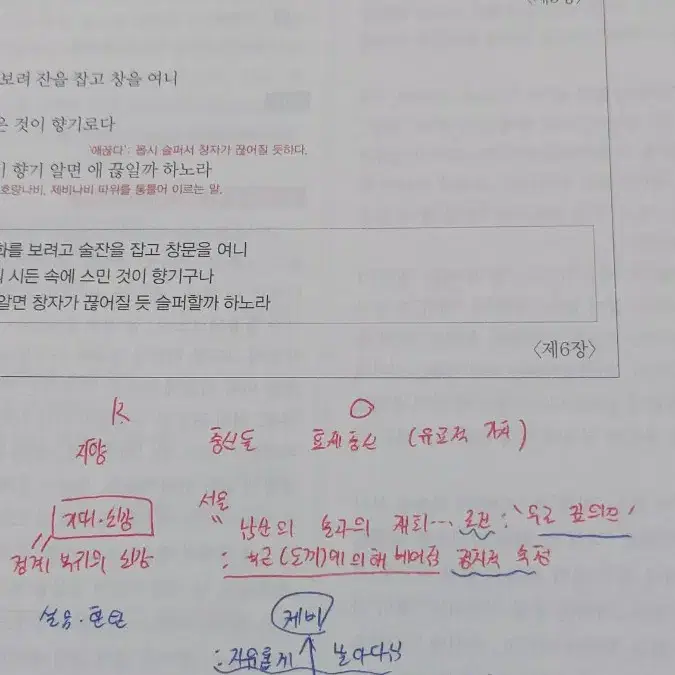 보려 잔을 잡고 창을 여니
것이 향기로다
'애끊다': 몹시 슬퍼서 창자가 끊어질 듯하다.
향기 알면 애 끊일까 하노라
호랑나비, 제비나비 따위를 통틀어 이르는 말.
를 보려고 술잔을 잡고 창문을 여니
시든 속에 스민 것이 향기구나
알면 창자가 끊어질 듯 슬퍼할까 하노라
〈제6장〉
지향 충신들 효제충신 (유교적 가치)
서울
기대·소망
남산의 의 재회...
정계 복귀의 소망 : 에 의해 베어짐 정치적 숙청
설움·한탄 제비
: 자유롭게 ↑ 날아다님